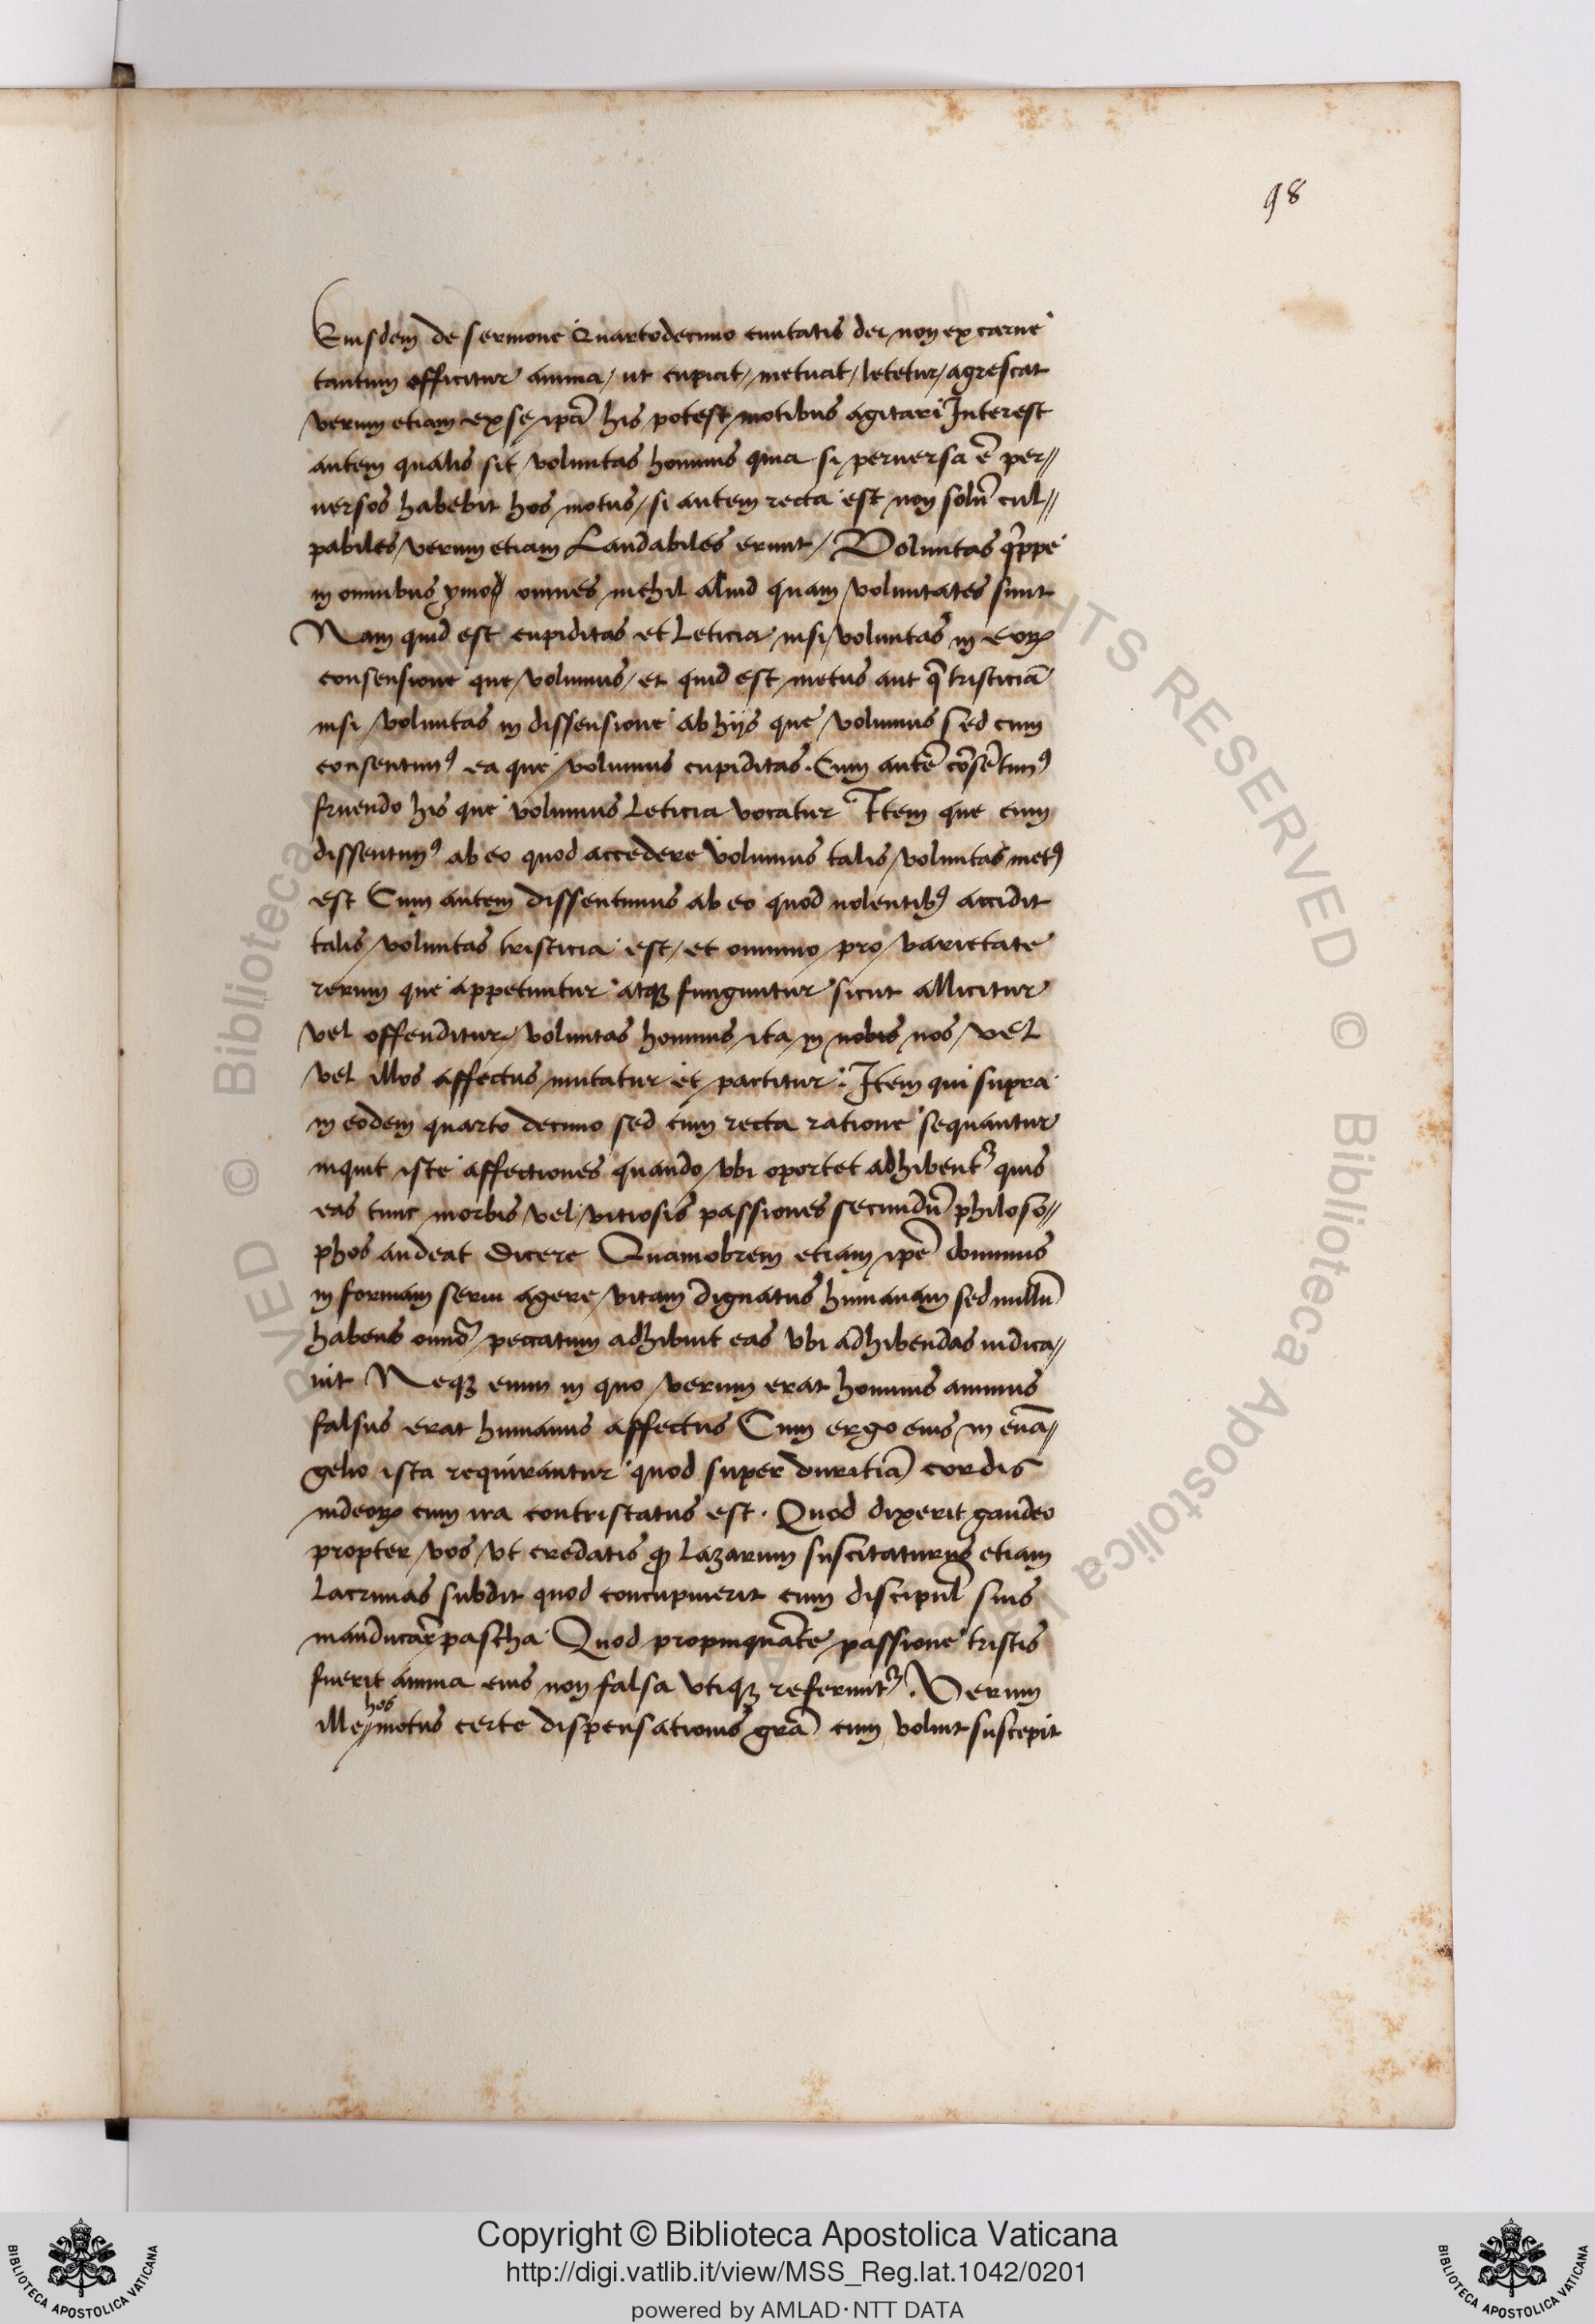 98
Eiusdem de sermone Quartodecimo ciuitatis dei non ex carne
tantum efficitur anima / ut cupiat / metuat / letetur / agrescat
verum etiam ex se ip̄a his potest motibus agitari Interest
autem qualis sit voluntas hominis quia si peruersa ē per//
uersos habebit hos motus / si autem recta est non solū cul//
pabiles / verum etiam Laudabiles erunt / Voluntas q̄ppe
in omnibus ymo omnes nichil aliud quam voluntates sunt
Nam quid est cupiditas et Leticia nisi voluntas in eoꝝ
consensione que volumus / et quid est metus aut q̄ tristiciā
nisi voluntas in dissensione ab hijs que volumus Sed cum
consentimꝰ ea que volumus cupiditas. Cum autē cōsētimꝰ
fruendo his que volumus Leticia vocatur Item que cum
dissentimꝰ ab eo quod accedere volumus talis voluntas metꝰ
est Cum autem dissentimus ab eo quod nolentibꝰ accidit
talis voluntas tristicia est / et omnino pro varietate
rerum que appetuntur atqꝫ funguntur sicut allicitur
vel offenditur voluntas hominis ita in nobis nos vel
vel illos affectus mutatur et partitur. Item qui supra
in eodem quarto decimo sed cum recta ratione sequantur
inquit iste affectiones quando vbi oportet adhibent᷑ quis
eas tunc morbis vel vitiosis passiones secundū philoso//
phos audeat dicere Quamobrem etiam ip̄e dominus
in formam serui agere vitam dignatus humanam sed nullū
habens omō peccatum adhibuit eas vbi adhibendas iudica//
uit Neqꝫ enim in quo verum erat hominis animus
falsus erat humanus affectus Cum ergo eius in euā//
gelio ista requirantur quod super duritiā cordis
iudeoꝝ cum ira contristatus est. Quod dixerit gaudeo
propter vos vt credatis ꝙ Lazarum suscitaturus etiam
Lacrimas subdit quod concupiuerit cum discipul̄ suis
manducar̄ pascha Quod propinquāte passione tristis
fuerit anima eius non falsa vtiqꝫ referunt᷑. Verum
hos
ille motus certe dispensationis grā cum voluit suscepit
Copyright © Biblioteca Apostolica Vaticana
http://digi.vatlib.it/view/MSS_Reg.lat.1042/0201
powered by AMLAD · NTT DATA
BIBLIOTECA APOSTOLICA VATICANA
BIBLIOTECA APOSTOLICA VATICANA